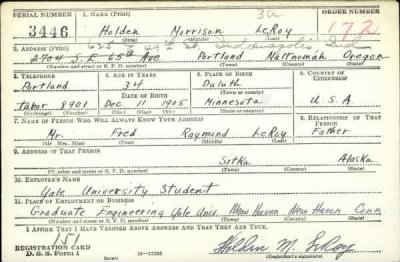 SERIAL NUMBER 1. NAME (Print) 3a ORDER NUMBER
3446 Holden Morrison LeRoy 172
(First) (Middle) (Last)
655 E 49th St Indianapolis, Ind
2. ADDRESS (Print)
2904 S.E. 65th Ave Portland Multnomah Oregon
(Number and street or R. F. D. number) (Town) (County) (State)
3. TELEPHONE 4. AGE IN YEARS 5. PLACE OF BIRTH 6. COUNTRY OF CITIZENSHIP
Portland 34 Duluth
DATE OF BIRTH (Town or county)
Tabor 8901 Dec 11 1905 Minnesota U.S.A
(Exchange) (Number) (Mo.) (Day) (Yr.) (State or country)
7. NAME OF PERSON WHO WILL ALWAYS KNOW YOUR ADDRESS 8. RELATIONSHIP OF THAT PERSON
Mr. Fred Raymond LeRoy Father
(Mr., Mrs., Miss) (First) (Middle) (Last)
9. ADDRESS OF THAT PERSON
Sitka Alaska
(Number and street or R. F. D. number) (Town) (County) (State)
10. EMPLOYER'S NAME
Yale University Student
11. PLACE OF EMPLOYMENT OR BUSINESS
Graduate Engineering Yale Univ. New Haven New Haven Conn.
(Number and street or R. F. D. number) (Town) (County) (State)
I AFFIRM THAT I HAVE VERIFIED ABOVE ANSWERS AND THAT THEY ARE TRUE.
151
REGISTRATION CARD
D. S. S. Form 1 16—17105 Holden M. LeRoy
(Registrant's signature)